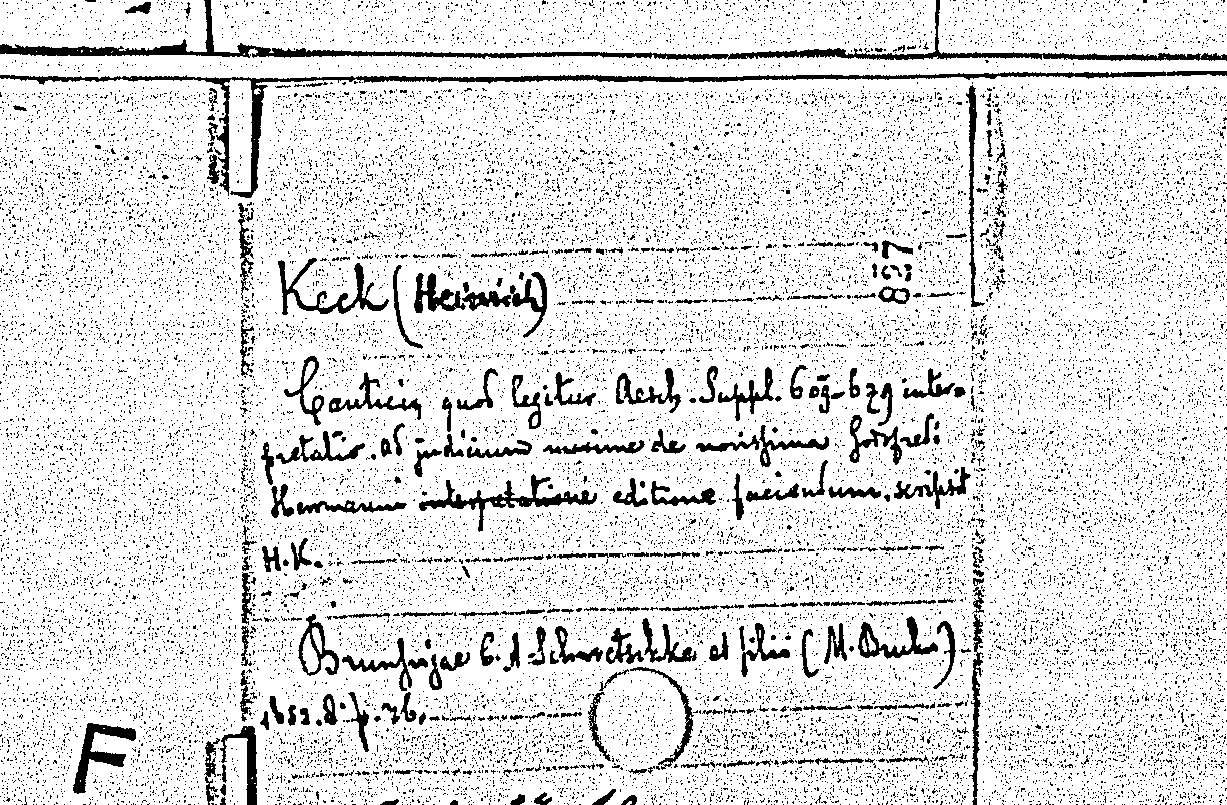 Keck (Heinrich)
827
Cantici, quod legitur Aesch. Suppl. 603-679 inter-
pretatio. Ad judicium maxime de novissima Godfredi
Hermanni interpretatione editione faciendum, scripsit
H.K.
Brunsvigae C. A. Schwetschke et filii (M. Bruhn)
1852. 8° p. 76.
F